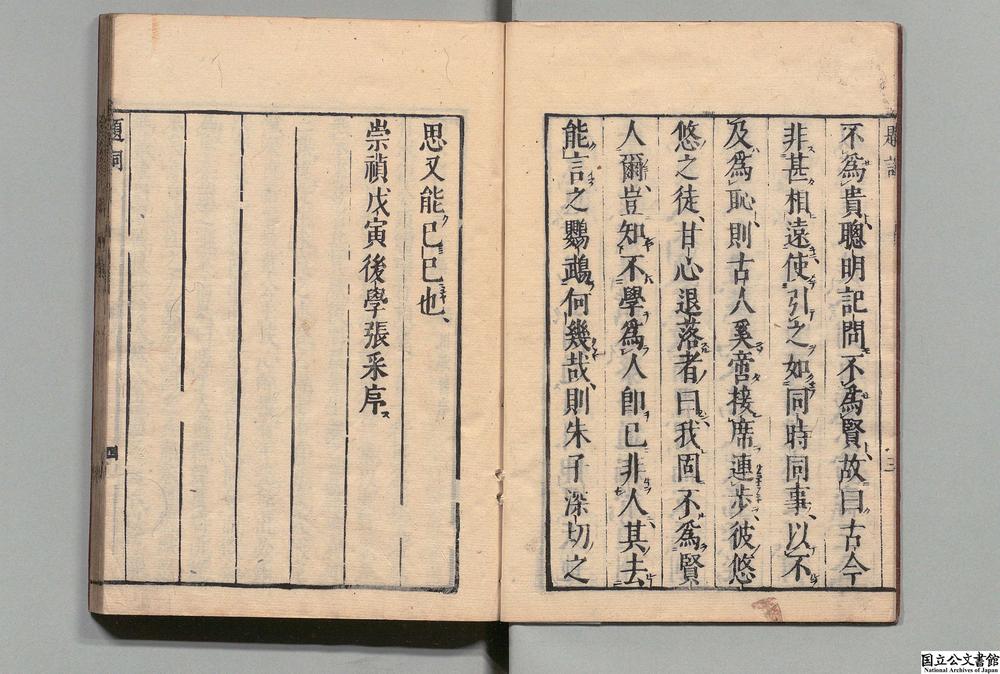 不爲貴聰明記問不爲賢故曰古今
非甚相遠使引之如同時同事以不
及爲恥則古人奚啻接席連步彼悠
悠之徒甘心退落者曰我固不爲賢
人爾豈知不學爲人即已非人其去
能言之鸚鵡何幾哉則朱子深切之
三
思又能已已也
崇禎戊寅後學張采序
題詞
四
国立公文書館
National Archives of Japan